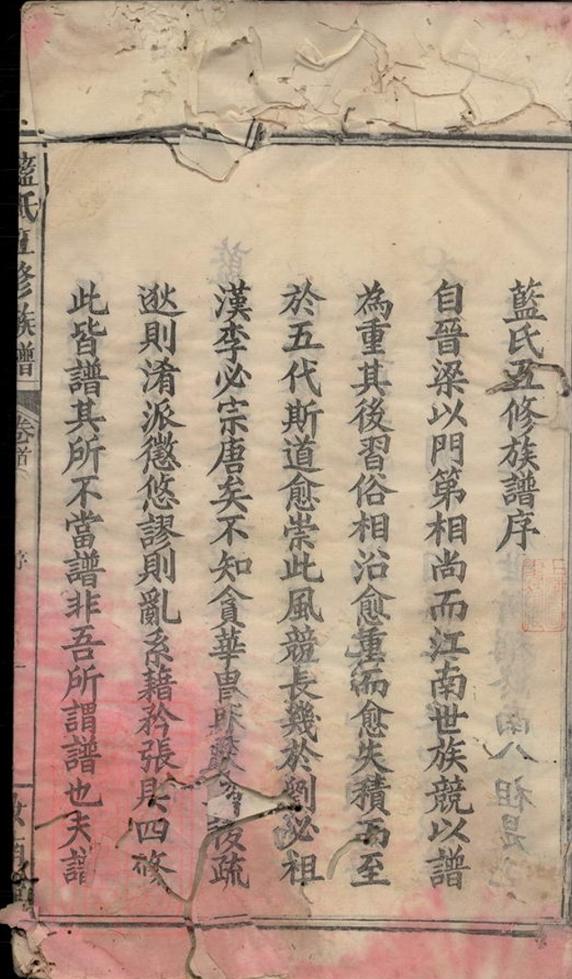 藍氏五修族譜序
自晉梁以門第相尚而江南世族競以譜
為重其後習俗相沿愈重而愈失積而至
於五代斯道愈崇此風競長幾於劉必祖
漢李必宗唐矣不知貪華冑疏
逖則淆派懲悠謬則亂系藉矜張則四修
此皆譜其所不當譜非吾所謂譜也夫譜
藍氏五修族譜
卷首
序